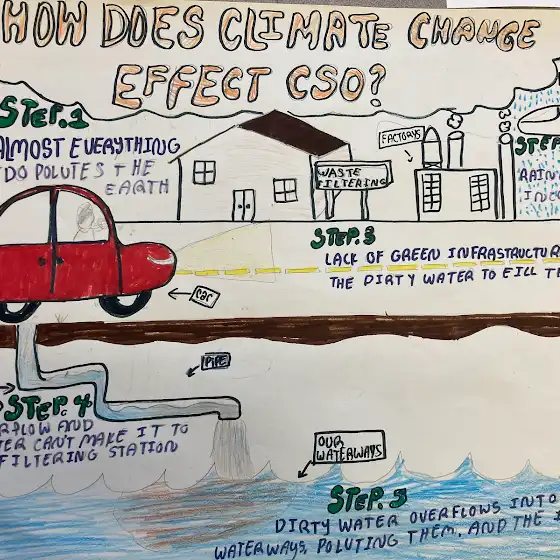 HOW DOES CLIMATE CHANGE
EFFECT CSO?
STEP.1
ALMOST EVERYTHING
DO POLUTES THE
EARTH
WASTE
FILTERING
FACTORYS
STEP
RAIN
STEP.3
LACK OF GREEN INFRASTRUCTUR
THE DIRTY WATER TO FILL
CAR
PIPE
STEP.4
AND
CAN'T MAKE IT TO
FILTERING STATION
OUR
WATERWAYS
STEP.5
DIRTY WATER OVERFLOWS INTO
WATERWAYS, POLUTING THEM, AND THE